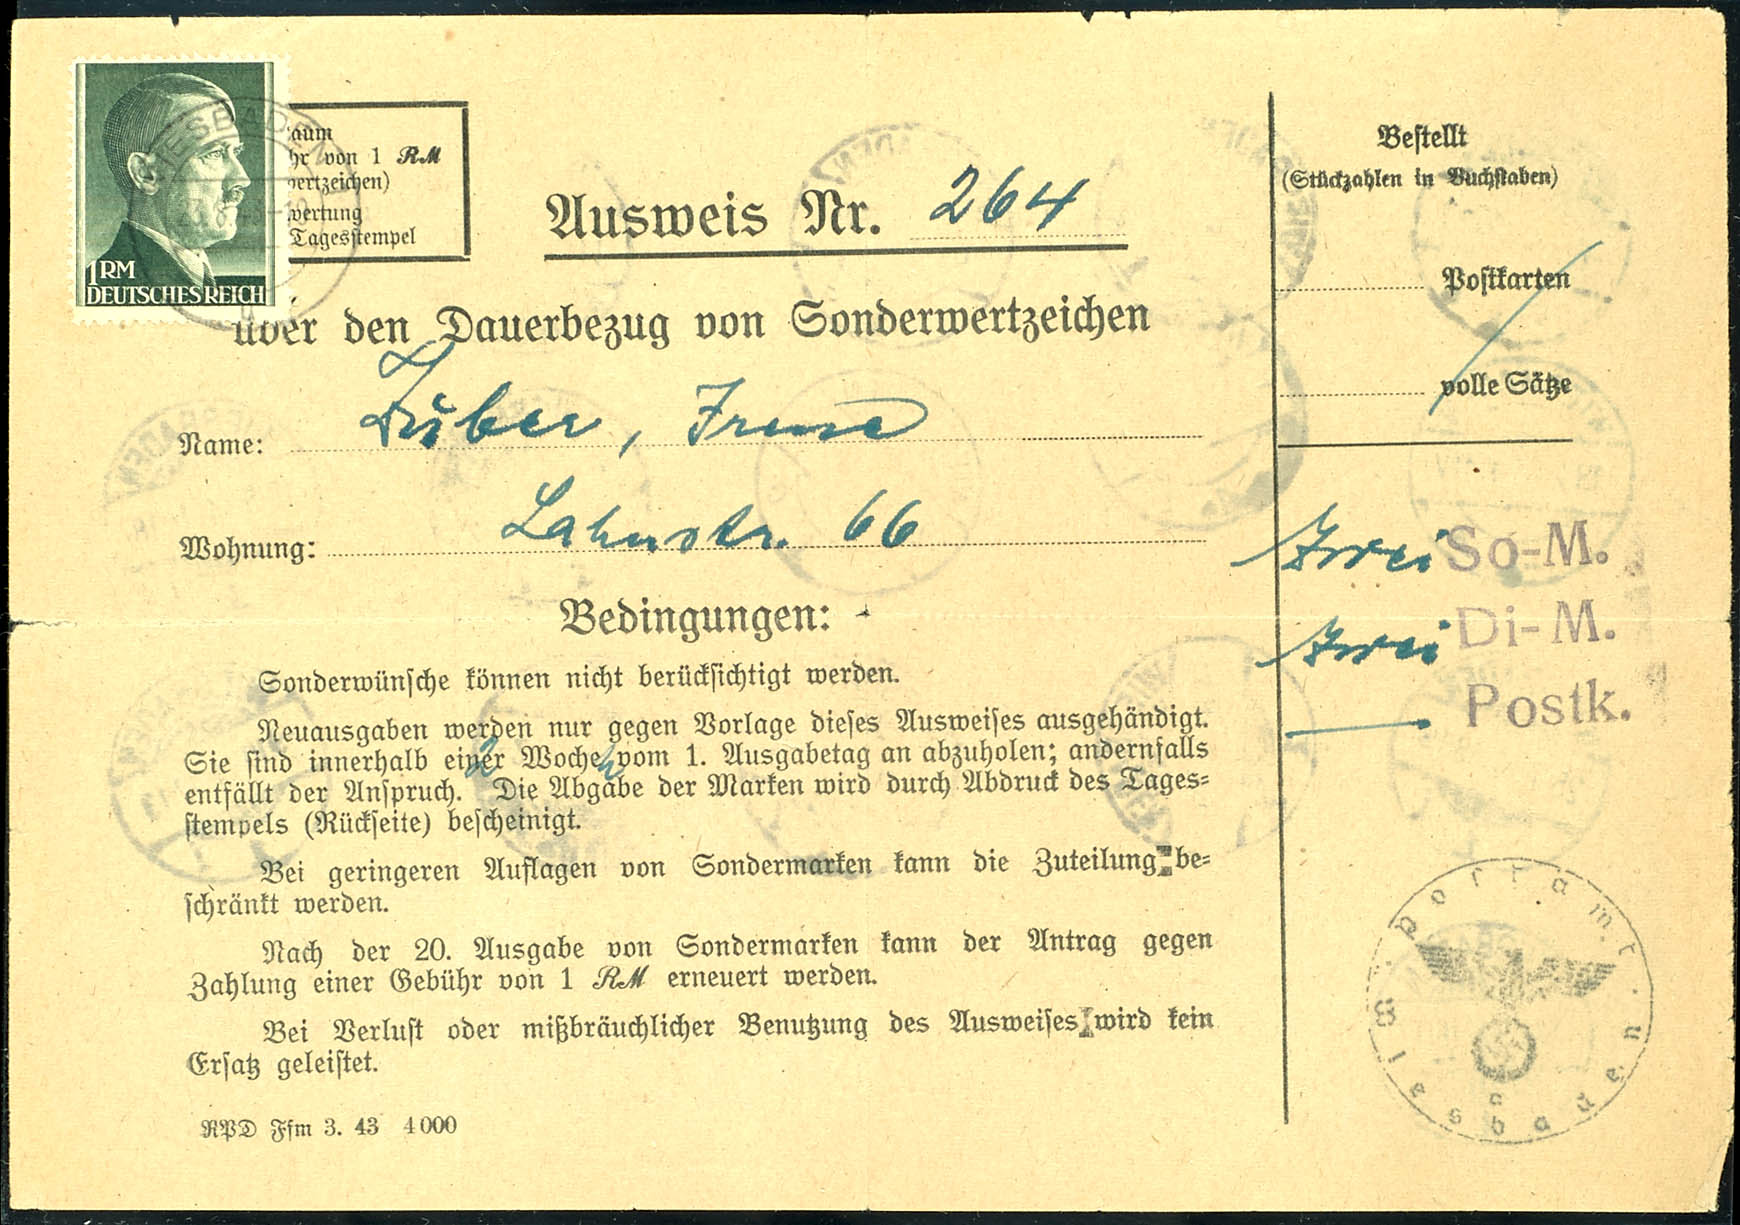 1 RM
DEUTSCHES REICH
WIESBADEN
aum
hr von 1 RM
ertzeichen)
wertung
Tagesstempel
Ausweis Nr. 264
über den Dauerbezug von Sonderwertzeichen
Name: Irene
Wohnung: Lahnstr. 66
Bedingungen:
Sonderwünsche können nicht berücksichtigt werden.
Neuausgaben werden nur gegen Vorlage dieses Ausweises ausgehändigt.
Sie sind innerhalb einer 2 Wochen vom 1. Ausgabetag an abzuholen; andernfalls
entfällt der Anspruch. Die Abgabe der Marken wird durch Abdruck des Tages=
stempels (Rückseite) bescheinigt.
Bei geringeren Auflagen von Sondermarken kann die Zuteilung be=
schränkt werden.
Nach der 20. Ausgabe von Sondermarken kann der Antrag gegen
Zahlung einer Gebühr von 1 RM erneuert werden.
Bei Verlust oder mißbräuchlicher Benutzung des Ausweises wird kein
Ersatz geleistet.
RPD Ffm 3. 43 4000
Bestellt
(Stückzahlen in Buchstaben)
Postkarten
volle Sätze
Zwei So-M.
Zwei Di-M.
Postk.
Postamt
Wiesbaden